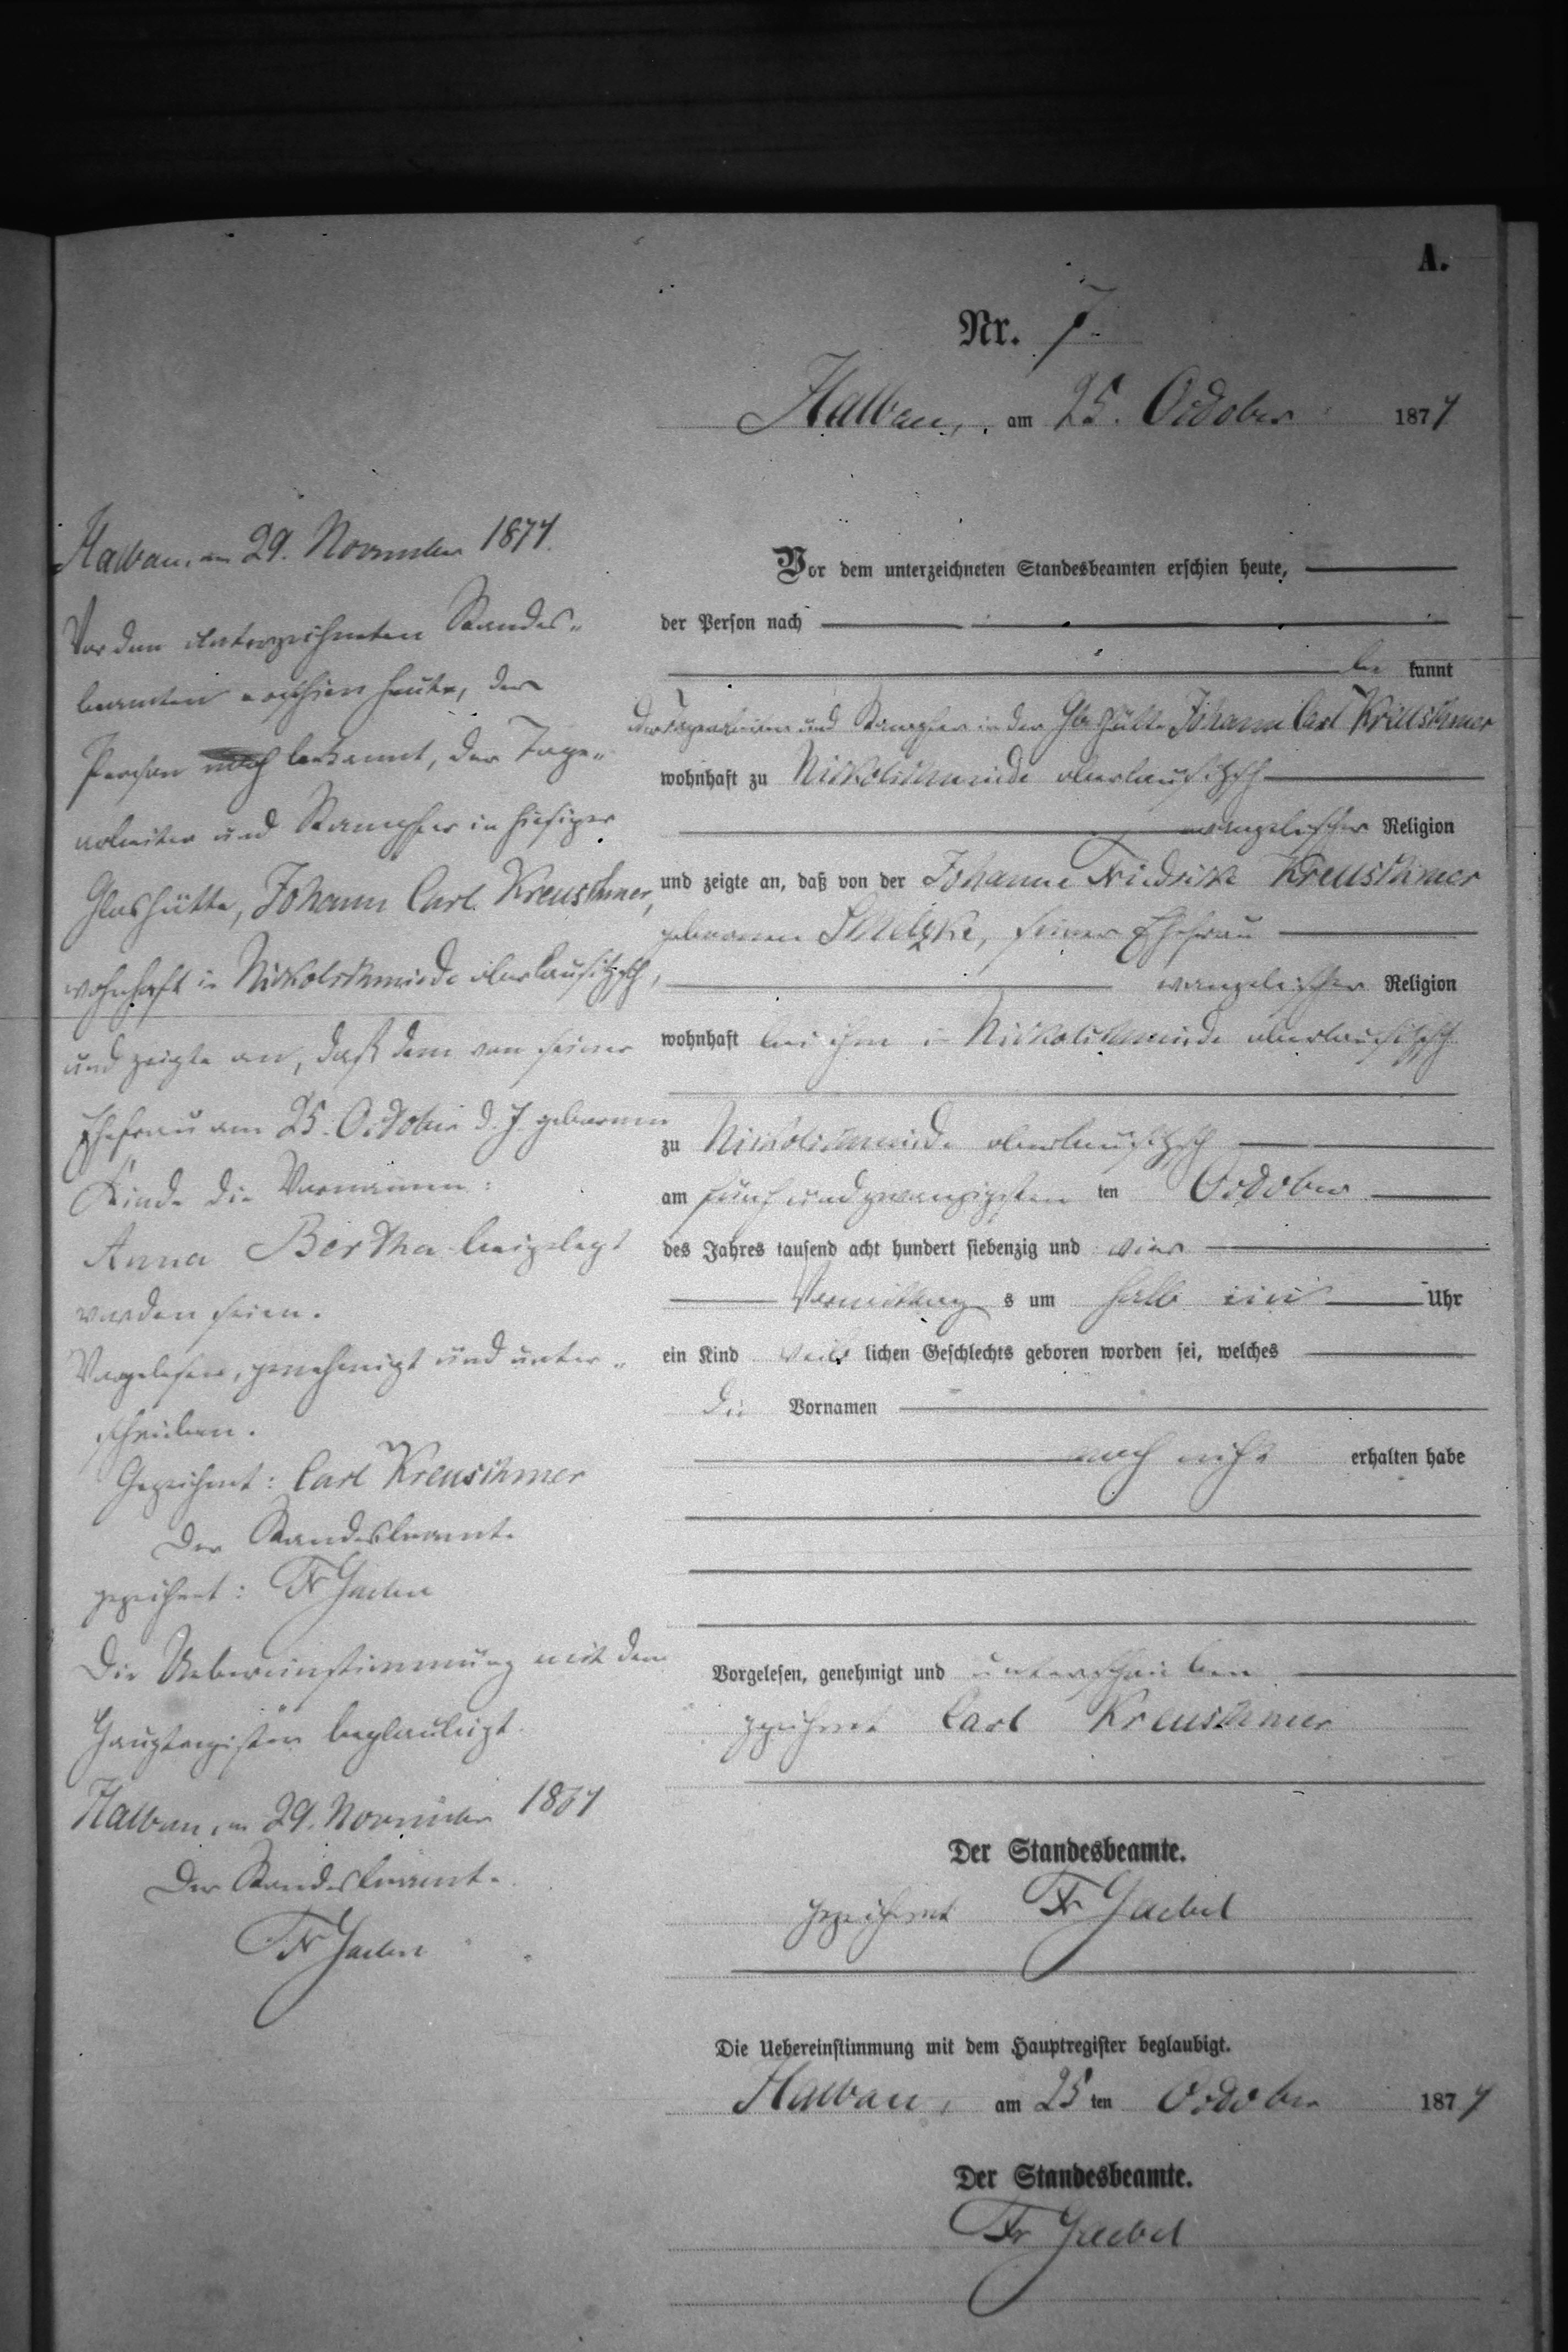 A.
Nr. 7.
Halbau, am 25. October 1874
Vor dem unterzeichneten Standesbeamten erschien heute,
der Person nach
be kannt
der Tagearbeiter und Stampfer in der Glashütte Johann Carl Kreuschmer
wohnhaft zu Nickolschmiede oberlausitzsch
evangelischer Religion
und zeigte an, daß von der Johanne Friedrike Kreuschmer
geborenen, seiner Ehefrau
evangelischer Religion
wohnhaft bei ihm in Nickolschmiede oberlausitzsch
zu Nickolschmiede oberlausitzsch
am fünf und zwanzigsten ten October
des Jahres tausend acht hundert siebenzig und vier
Vormittag s um halb Uhr
ein Kind weib lichen Geschlechts geboren worden sei, welches
die Vornamen
noch nicht erhalten habe
Vorgelesen, genehmigt und unterschrieben
gezeichnet Carl Kreuschmer
Der Standesbeamte.
gezeichnet Fr Gaebel
Die Uebereinstimmung mit dem Hauptregister beglaubigt.
Halbau, am 25 ten October 1874
Der Standesbeamte.
Fr Gaebel
Halbau, am 29. November 1874.
Vor dem unterzeichneten Standes-
beamten erschien heute, der
Person bekannt, der Tage-
arbeiter und Stampfer in hiesiger
Glashütte, Johann Carl Kreuschmer,
wohnhaft in Nickolschmiede oberlausitzsch,
und zeigte an, daß dem von seiner
Ehefrau am 25. October d. J. geborenen
Kinde die Vornamen:
Anna Bertha beigelegt
worden seien.
Vorgelesen, genehmigt und unter-
schrieben.
Gezeichnet: Carl Kreuschmer
Der Standesbeamte
gezeichnet: Fr Gaebel
Die Uebereinstimmung mit dem
Hauptregister beglaubigt.
Halbau, am 29. November 1874
Der Standesbeamte.
Fr Gaebel